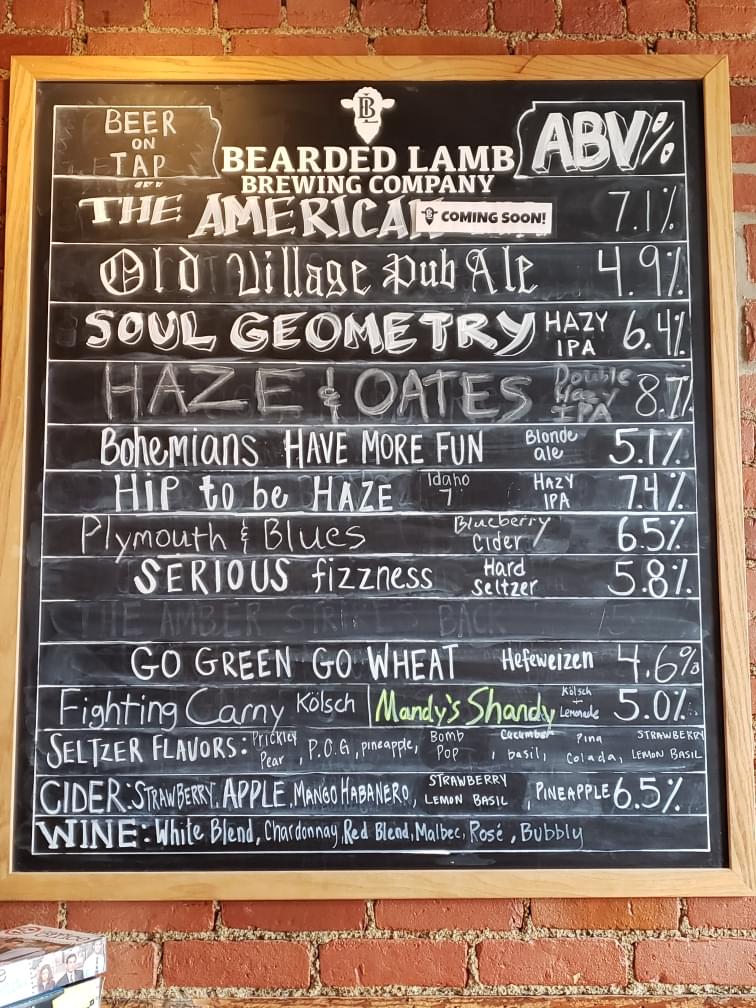 BL
BEER
ON
TAP
BEARDED LAMB
BREWING COMPANY
ABV%
THE AMERICAN BL COMING SOON! 7.1%
Old Village Pub Ale 4.9%
SOUL GEOMETRY HAZY IPA 6.4%
HAZE & OATES Double Hazy IPA 8.7%
Bohemians HAVE MORE FUN Blonde ale 5.1%
HiP to be HAZE Idaho 7 HAZY IPA 7.4%
Plymouth & Blues Blueberry Cider 6.5%
SERIOUS fizzness Hard Seltzer 5.8%
THE AMBER STRIKES BACK
GO GREEN GO WHEAT Hefeweizen 4.6%
Fighting Carny Kölsch Mandy's Shandy Kölsch + Lemonade 5.0%
SELTZER FLAVORS: Prickly Pear, P.O.G, pineapple, Bomb Pop, Cucumber basil, Pina Colada, STRAWBERRY LEMON BASIL
CIDER: STRAWBERRY, APPLE, MANGO HABANERO, STRAWBERRY LEMON BASIL, PINEAPPLE 6.5%
WINE: White Blend, Chardonnay, Red Blend, Malbec, Rosé, Bubbly